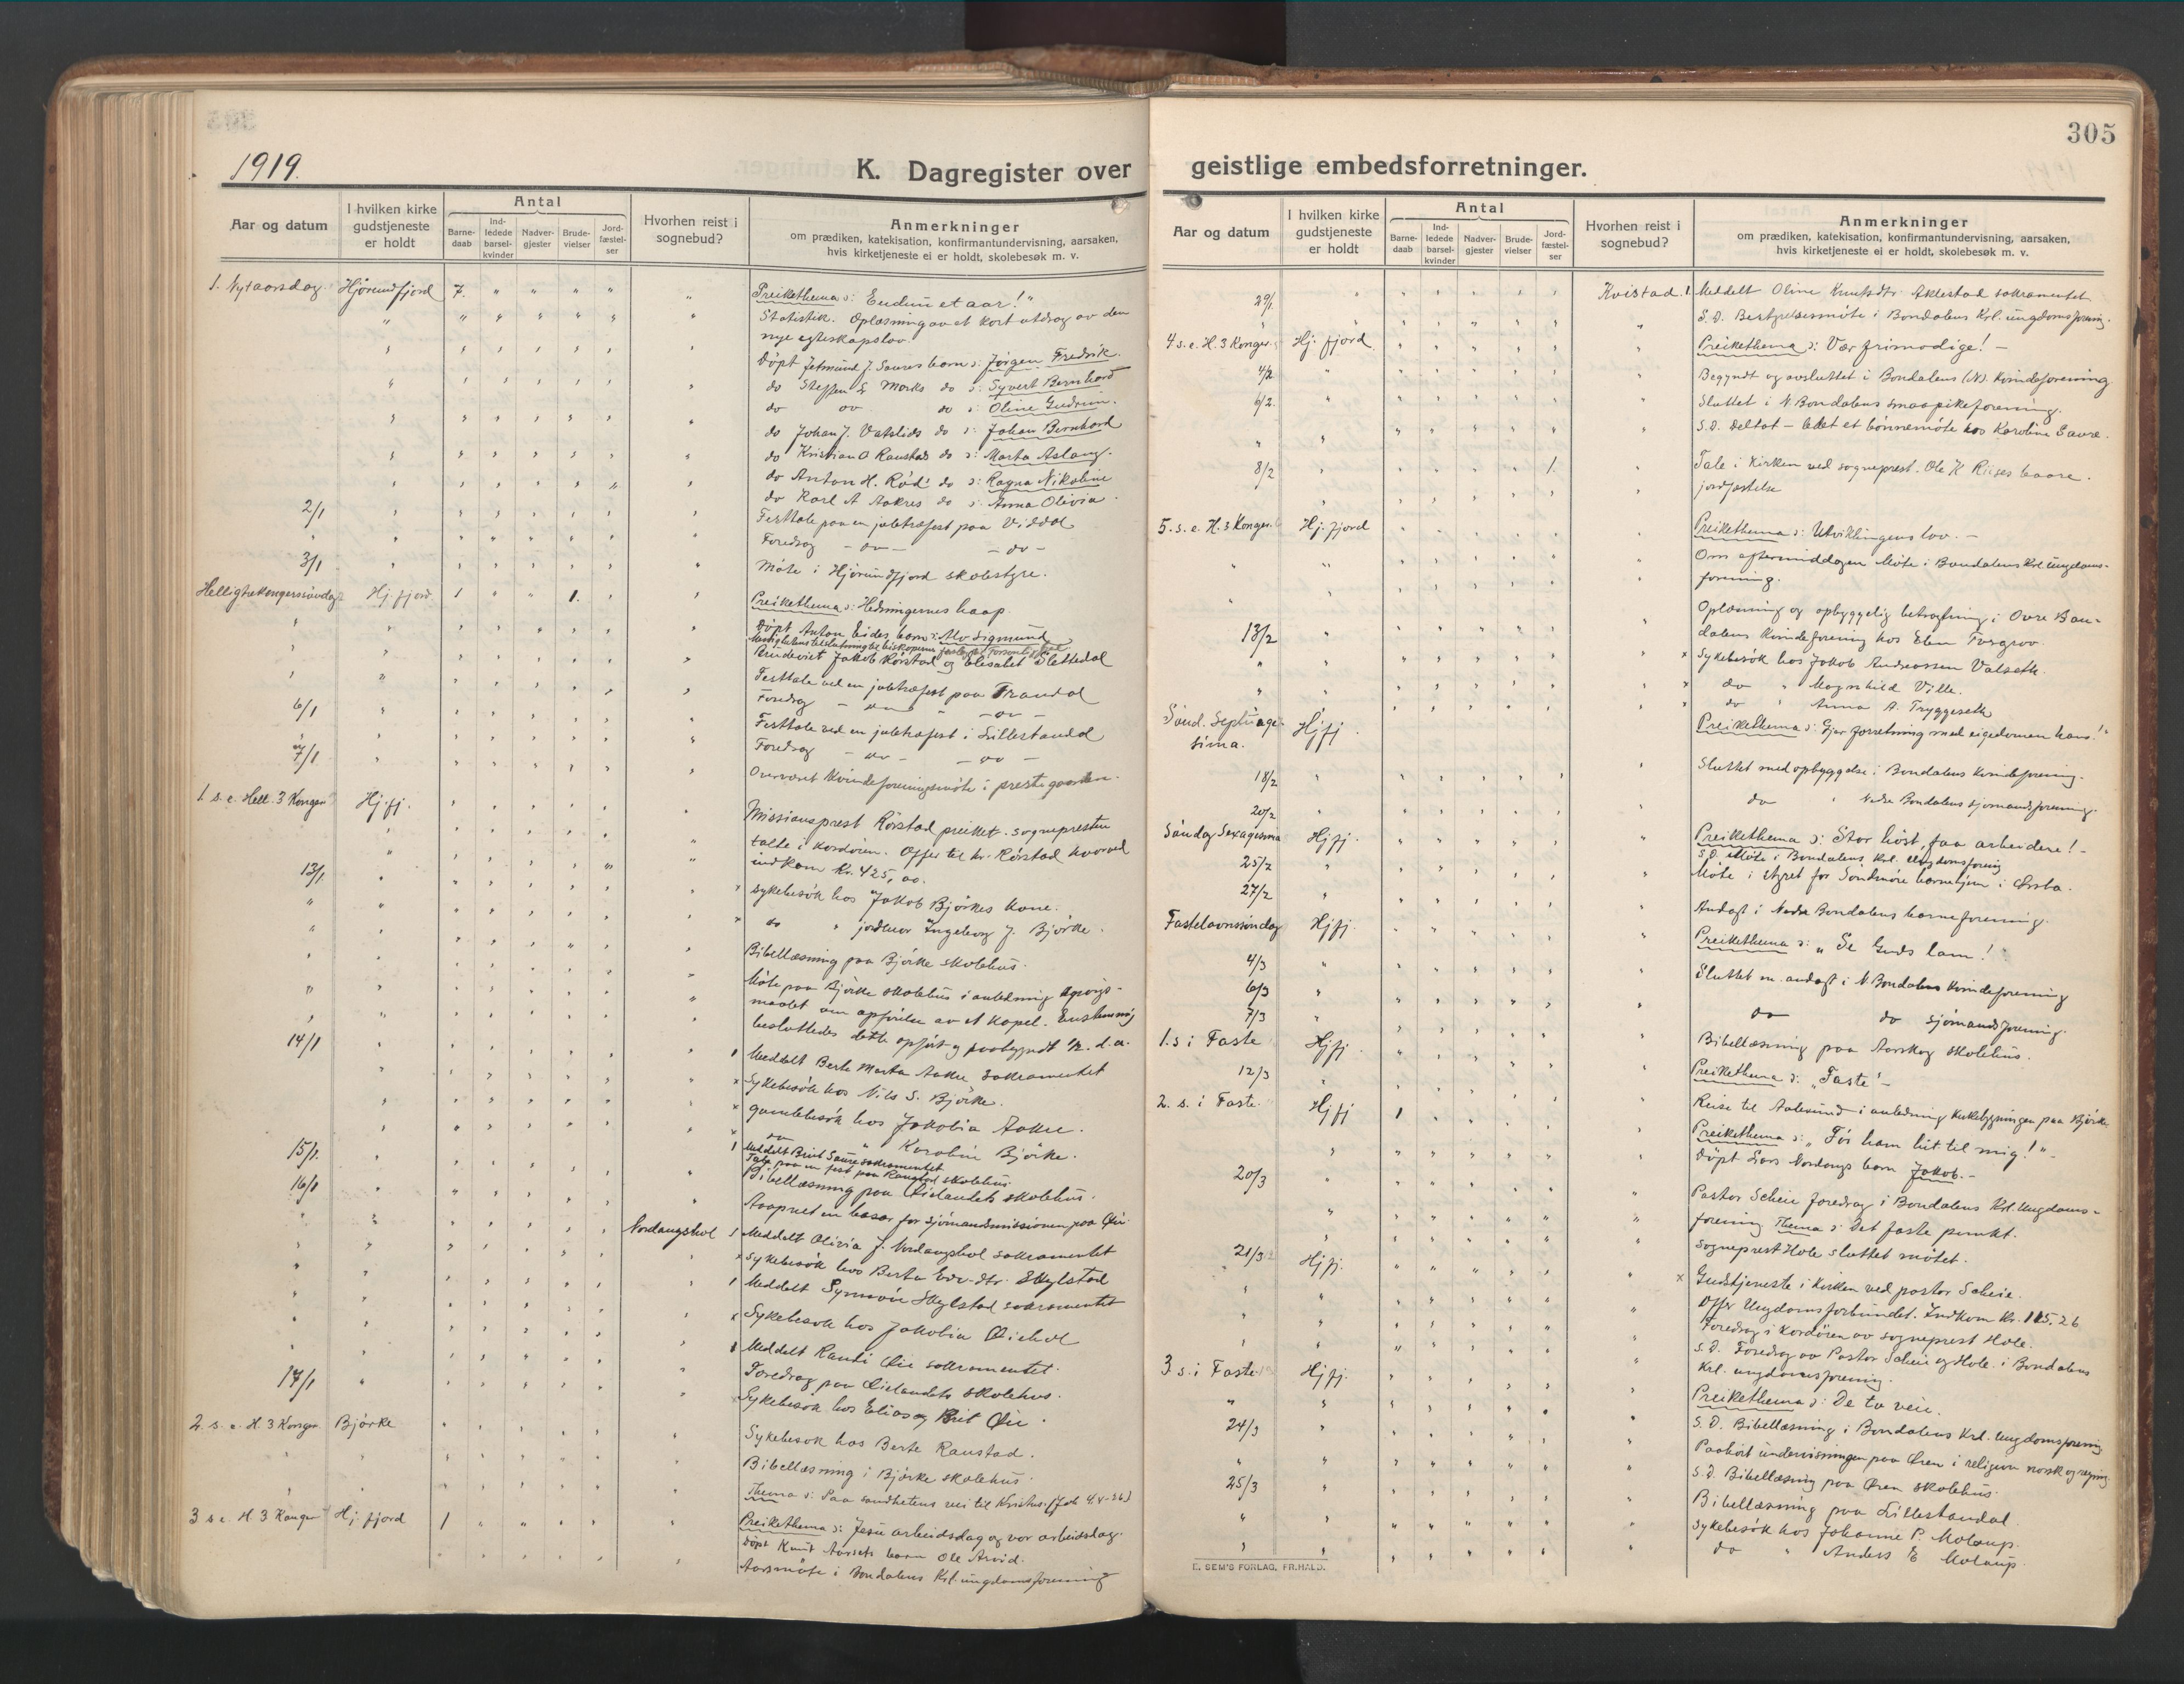 1919.
K. Dagregister over
Aar og datum
I hvilken kirke gudstjeneste er holdt
Antal
Barnedaab
Indledede barselkvinder
Nadvergjester
Brudevielser
Jordfæstelser
Hvorhen reist i sognebud?
Anmerkninger
om prædiken, katekisation, konfirmantundervisning, aarsaken,
hvis kirketjeneste ei er holdt, skolebesøk m. v.
1. Nytaarsdag. Hjörundfjord 7. Preikethema ɔ: Endnu et aar!"
Statistik. Oplæsning av et kort utdrag av den
nye egteskapslov.
Döpt Jetmund J. Saures barn ɔ: Jörgen Fredrik.
do Steffen E Morks do ɔ: Syvert Bernhard
do do do ɔ: Oline Gudrun.
do Johan J. Vatslids do ɔ: Johan Bernhard
do Kristian O Raustads do ɔ: Marta Aslaug.
do Anton H. Röd do ɔ: Ragna Nikoline
do Karl A Aakres do ɔ: Anna Olivia.
2/1 Festtale paa en juletræfest paa Viddal
Foredrag - do - - do -
3/1 Möte i Hjörundfjord skolestyre.
Helligtrekongerssöndag Hj.fjord. 1 1. Preikethema ɔ: Hedningernes haap.
Döpt Anton Eides barn ɔ: Alv Sigmund
Brudeviet Jakob Rörstad og Elisabet Slettedal
Festtale ved en juletræfest paa Trandal
Foredrag - do - - do -
6/1 Festtale ved en juletræfest i Lillestandal
Foredrag - do - - do -
7/1 Overværet Kvindeforeningsmöte i prestegaarden.
1 s. e. Hell. 3 Konger Hj.fj. Missionsprest Rörstad preiket. sognepresten
talte i kordören. Offer til hr. Rörstad hvorved
indkom Kr. 425,00.
13/1 x sykebesök hos Jakob Björkes kone.
x do " jordmor Ingeborg J. Björke.
Bibellæsning paa Björke skolehus.
Möte paa Björke skolehus i anledning spörgs-
maalet om opförelse av et kapel. Enstemmig
besluttedes dette opfört og paabegyndt
14/1 1 Meddelt Berte Marta Aakre sakramentet
x Sykebesök hos Nils S. Björke.
x gamlebesök hos Jakobia Aakre.
x do " Karoline Björke.
15/1. 1 Meddelt Brit Saure sakramentet
Tale paa en fest paa Raustad skolehus.
Bibellæsning paa Öielandets skolehus.
16/1 Aapnet en basar for sjömandsmissionen paa Öie
Nordangshol 1 Meddelt Olivia J. Nordangshol sakramentet
x Sykebesök hos Berta Skylstad
1 Meddelt Synnöve Skylstad sakramentet
x Sykebesök hos Jakobia Öiehol
1 Meddelt Ranti Öie sakramentet.
Foredrag paa Öielandets skolehus.
17/1 Sykebesök hos Elias og Brit Öie.
2. s. e. H. 3 Konger Björke Sykebesök hos Berte Raustad.
Bibellæsning i Björke skolehus.
Thema ɔ: Paa sandhetens vei til Kristus. (Joh 4.4-26)
3 s. e. H. 3 Konger Hj. fjord 1 Preikethema ɔ: Jesu arbeidsdag og vor arbeidsdag.
Döpt Knut Aarsets barn Ole Arvid.
Aarsmöte i Bondalens Krl. ungdomsforening
305
geistlige embedsforretninger.
Aar og datum
I hvilken kirke gudstjeneste er holdt
Antal
Barnedaab
Indledede barselkvinder
Nadvergjester
Brudevielser
Jordfæstelser
Hvorhen reist i sognebud?
Anmerkninger
om prædiken, katekisation, konfirmantundervisning, aarsaken,
hvis kirketjeneste ei er holdt, skolebesøk m. v.
29/1 Kvistad. 1. Meddelt Oline Knutsdtr Aklestad sakramentet
S. D. Bestyrelsesmöte i Bondalens Krl. ungdomsforening.
4 s. e. H. 3 Konger. Hj. fjord. Preikethema ɔ: Vær frimodige! -
4/2 Begyndt og avsluttet i Bondalens (N). Kvindeforening
6/2. Sluttet i N Bondalens smaapikeforening.
S. D. Deltat - ledet et bönnemöte hos Karoline Saure.
8/2 1. Tale i Kirken ved sogneprest. Ole H Riises baare.
jordfæstelse
5. s. e. H. 3 Konger. Hj. fjord Preikethema ɔ: Utviklingens lov. -
Om eftermiddagen Möte i Bondalens Krl ungdoms-
forening.
Oplæsning og opbyggelig betragtning i Övre Bon-
13/2 dalens Kvindeforening hos Elen
x Sykebesök hos Jakob Andreassen Valseth.
x do " Magnhild Ville.
x do " Anna A. Tryggeseth
Sönd. Septuagesima. Hjfj. Preikethema ɔ: Gjör forretning med eigedomen hans!"
18/2 Sluttet med opbyggelse i Bondalens Kvindeforening.
20/2 do " Nedre Bondalens sjömandsforening.
Söndag Sexagesima Hjfj. Preikethema ɔ: Stor höst, faa arbeidere! -
S. D. Möte i Bondalens Krl. Ungdomsforening
25/2 Möte i styret for Söndmöre barnehjem i Örsta.
27/2 Andagt i Nedre Bondalens barneforening.
Fastelavnssöndag Hjfj. Preikethema ɔ: „Se Guds lam!
4/3 Sluttet m. andagt i N Bondalens Kvindeforening
6/3 do do sjömandsforening.
7/3 Bibellæsning paa Aarskog skolehus.
1. s i Faste Hjfj. Preikethema ɔ: „Faste" -
12/3 Reise til Aalesund i anledning kirkebygningen paa Björke.
2. s. i Faste. Hjfj 1 Preikethema ɔ: „Før ham hit til mig!" -
Döpt Lars Nordangs barn Jakob. -
20/3 Pastor Scheie foredrag i Bondalens Krl. Ungdoms-
forening Thema ɔ: Det faste punkt.
Sogneprest Hole sluttet mötet.
21/3 Hjfj. x Gudstjeneste i kirken ved pastor Scheie.
Offer Ungdomsforbundet. Indkom Kr. 115.26
Foredrag i kordören av sogneprest Hole.
S. D. Foredrag av Pastor Scheie og Hole. i Bondalens
Krl. ungdomsforening.
3 s. i Faste. Hjfj. Preikethema ɔ: De to veie.
S. D. Bibellæsning i Bondalens Krl. Ungdomsforening
24/3 Paahört undervisningen paa Ören i religion norsk og regning.
S. D. Bibellæsning paa Ören skolehus.
25/3 Bibellæsning paa Lillestandal.
Sykebesök hos Johanne P. Molaup.
do " Anders E Molaup.
E. SEM'S FORLAG, FR.HALD.